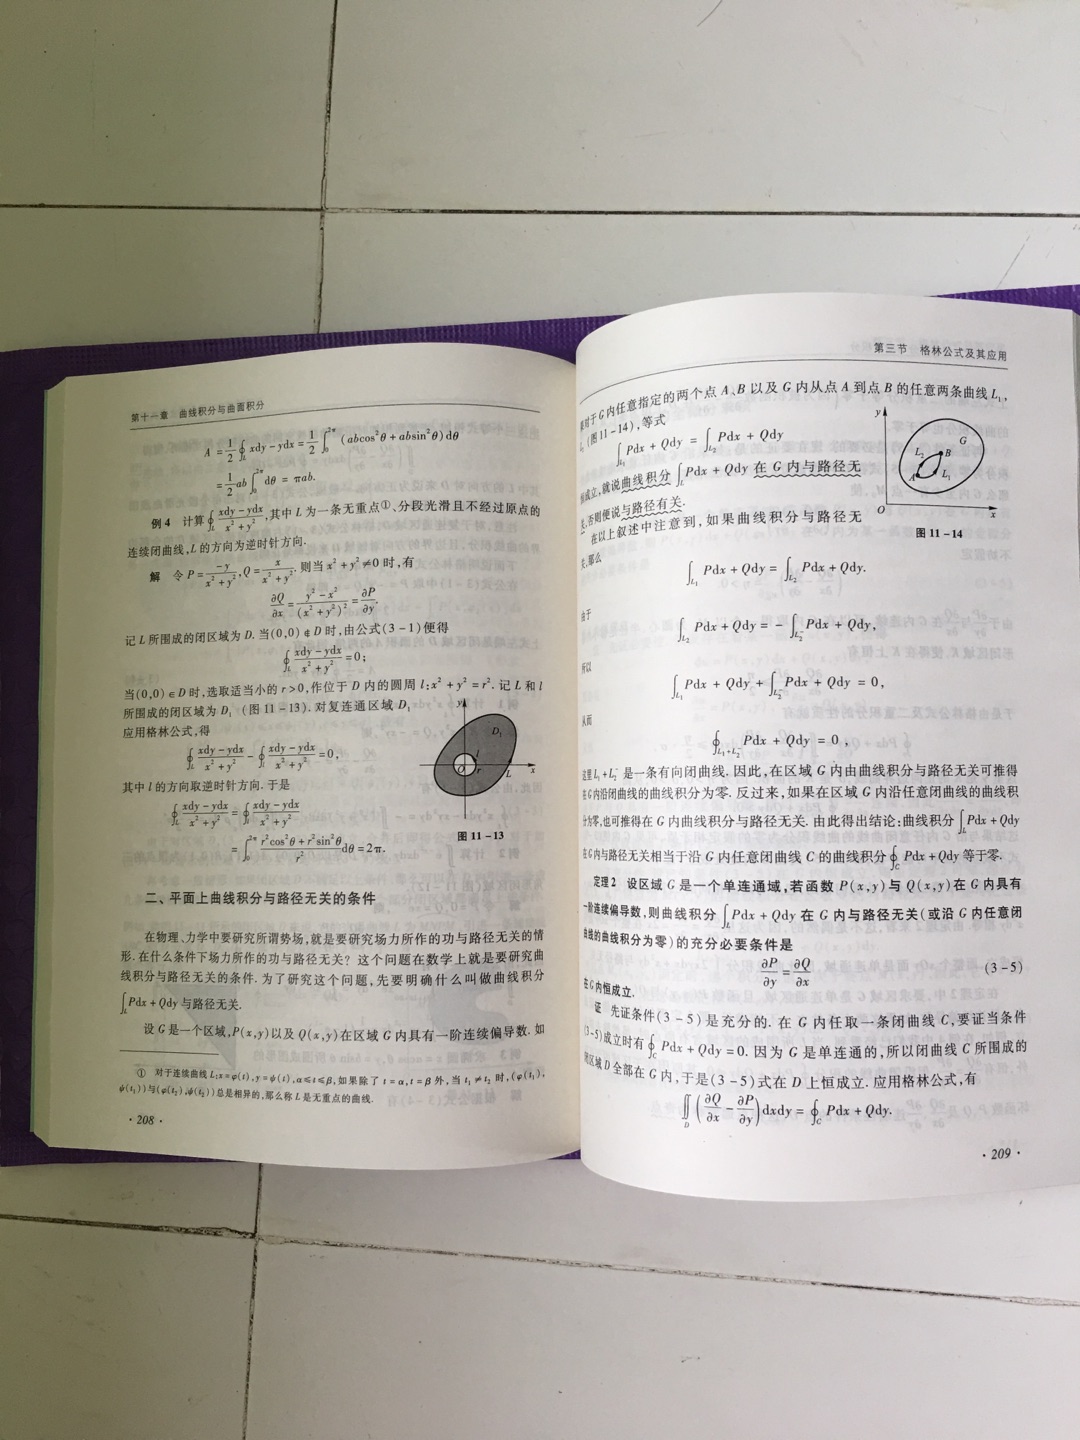 第十一章 曲线积分与曲面积分
A = 1/2 ∮_L xdy - ydx = 1/2 ∫_0^{2π} (abcos²θ + absin²θ)dθ
= 1/2 ab ∫_0^{2π} dθ = πab.
例 4 计算 ∮_L (xdy - ydx)/(x² + y²), 其中 L 为一条无重点①、分段光滑且不经过原点的
连续闭曲线, L 的方向为逆时针方向.
解 令 P = -y/(x² + y²), Q = x/(x² + y²). 则当 x² + y² ≠ 0 时, 有
∂Q/∂x = (y² - x²)/(x² + y²)² = ∂P/∂y.
记 L 所围成的闭区域为 D. 当 (0,0) ∉ D 时, 由公式(3-1)便得
∮_L (xdy - ydx)/(x² + y²) = 0;
当(0,0) ∈ D 时, 选取适当小的 r > 0, 作位于 D 内的圆周 l: x² + y² = r². 记 L 和 l
所围成的闭区域为 D₁ (图 11-13). 对复连通区域 D₁
应用格林公式, 得
∮_L (xdy - ydx)/(x² + y²) - ∮_l (xdy - ydx)/(x² + y²) = 0,
其中 l 的方向取逆时针方向. 于是
∮_L (xdy - ydx)/(x² + y²) = ∮_l (xdy - ydx)/(x² + y²)
= ∫_0^{2π} (r²cos²θ + r²sin²θ)/r² dθ = 2π.
y
D₁
l
O r L x
图 11-13
二、平面上曲线积分与路径无关的条件
在物理、力学中要研究所谓势场, 就是要研究场力所作的功与路径无关的情
形. 在什么条件下场力所作的功与路径无关? 这个问题在数学上就是要研究曲
线积分与路径无关的条件. 为了研究这个问题, 先要明确什么叫做曲线积分
∫_L Pdx + Qdy 与路径无关.
设 G 是一个区域, P(x,y) 以及 Q(x,y) 在区域 G 内具有一阶连续偏导数. 如
① 对于连续曲线 L: x = φ(t), y = ψ(t), α ≤ t ≤ β, 如果除了 t = α, t = β 外, 当 t₁ ≠ t₂ 时, (φ(t₁),
ψ(t₁)) 与 (φ(t₂), ψ(t₂)) 总是相异的, 那么称 L 是无重点的曲线.
· 208 ·
第三节 格林公式及其应用
对于 G 内任意指定的两个点 A、B 以及 G 内从点 A 到点 B 的任意两条曲线 L₁,
(图 11-14), 等式
∫_{L₁} Pdx + Qdy = ∫_{L₂} Pdx + Qdy
成立, 就说曲线积分 ∫_L Pdx + Qdy 在 G 内与路径无
关, 否则便说与路径有关.
在以上叙述中注意到, 如果曲线积分与路径无
关, 那么
y
G
L₂ B
A L₁
O x
图 11-14
∫_{L₁} Pdx + Qdy = ∫_{L₂} Pdx + Qdy.
由于
∫_{L₂} Pdx + Qdy = - ∫_{L₂⁻} Pdx + Qdy,
所以
∫_{L₁} Pdx + Qdy + ∫_{L₂⁻} Pdx + Qdy = 0,
从而
∮_{L₁+L₂⁻} Pdx + Qdy = 0,
这里 L₁ + L₂⁻ 是一条有向闭曲线. 因此, 在区域 G 内由曲线积分与路径无关可推得
在 G 内沿闭曲线的曲线积分为零. 反过来, 如果在区域 G 内沿任意闭曲线的曲线积
分为零, 也可推得在 G 内曲线积分与路径无关. 由此得出结论: 曲线积分 ∫_L Pdx + Qdy
在 G 内与路径无关相当于沿 G 内任意闭曲线 C 的曲线积分 ∮_C Pdx + Qdy 等于零.
定理 2 设区域 G 是一个单连通域, 若函数 P(x,y) 与 Q(x,y) 在 G 内具有
一阶连续偏导数, 则曲线积分 ∫_L Pdx + Qdy 在 G 内与路径无关(或沿 G 内任意闭
曲线的曲线积分为零)的充分必要条件是
∂P/∂y = ∂Q/∂x (3-5)
在 G 内恒成立.
证 先证条件(3-5)是充分的. 在 G 内任取一条闭曲线 C, 要证当条件
(3-5)成立时有 ∮_C Pdx + Qdy = 0. 因为 G 是单连通的, 所以闭曲线 C 所围成的
闭区域 D 全部在 G 内, 于是(3-5)式在 D 上恒成立. 应用格林公式, 有
∬_D (∂Q/∂x - ∂P/∂y) dxdy = ∮_C Pdx + Qdy.
· 209 ·